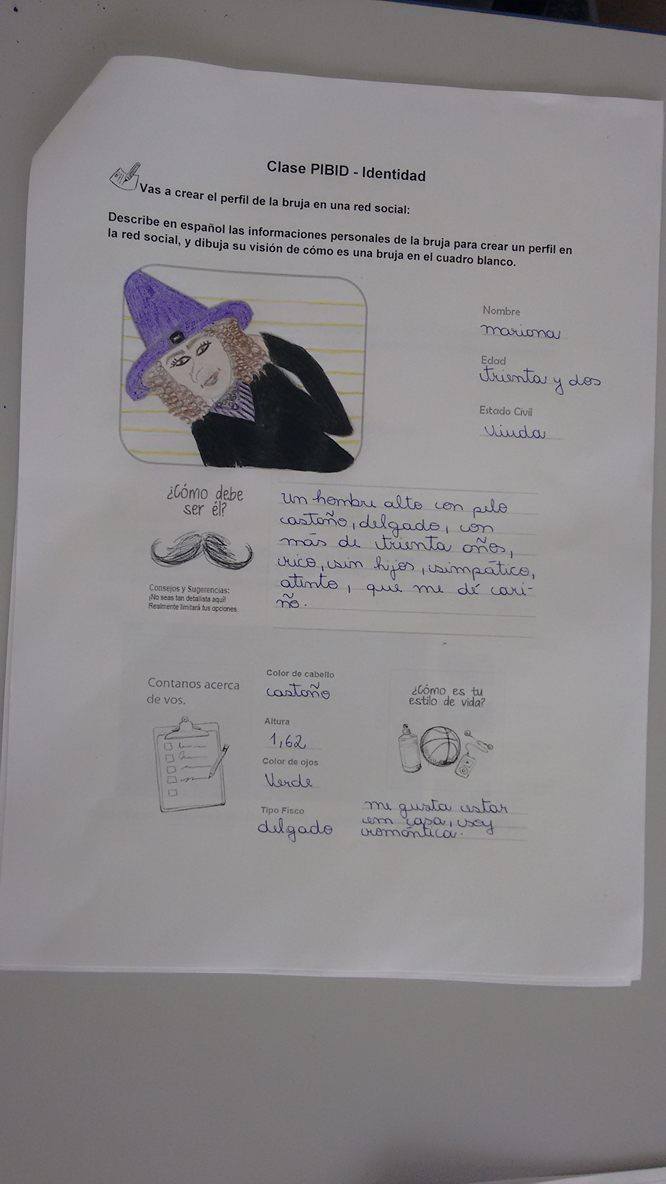 Clase PIBID - Identidad
Vas a crear el perfil de la bruja en una red social:
Describe en español las informaciones personales de la bruja para crear un perfil en
la red social, y dibuja su visión de cómo es una bruja en el cuadro blanco.
Nombre
mariana
Edad
trienta y dos
Estado Civil
Viuda
¿Cómo debe
ser él?
Consejos y Sugerencias:
¡No seas tan detallista aquí!
Realmente limitará tus opciones
un hombre alto con pelo
castaño, delgado, con
más de trienta años,
rico, sin hijos, simpático,
atinto, que me dé cari-
ño.
Contanos acerca
de vos.
Color de cabello
castaño
Altura
1,62
Color de ojos
Verde
Tipo Físco
delgado
¿Cómo es tu
estilo de vida?
me gusta estar
em casa, soy
romántica.